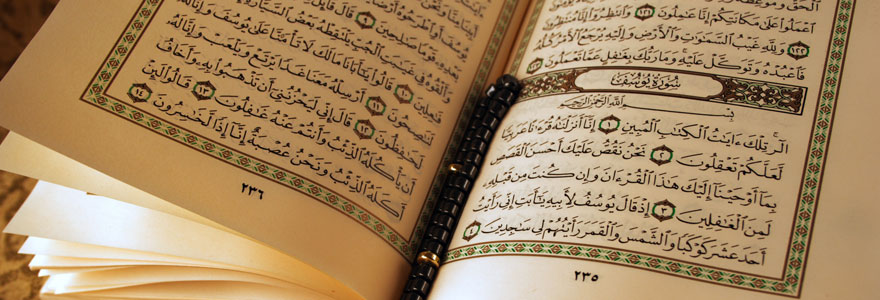 الْحَقُّ وَمَوْعِظَةٌ
اعْمَلُوا عَلَىٰ مَكَانَتِكُمْ إِنَّا عَامِلُونَ ١٢١ وَانتَظِرُوا إِنَّا مُنتَظِرُونَ
١٢٢ وَلِلَّهِ غَيْبُ السَّمَاوَاتِ وَالْأَرْضِ وَإِلَيْهِ يُرْجَعُ الْأَمْرُ كُلُّهُ
فَاعْبُدْهُ وَتَوَكَّلْ عَلَيْهِ وَمَا رَبُّكَ بِغَافِلٍ عَمَّا تَعْمَلُونَ ١٢٣
سُورَةُ يُوسُفَ
بِسْمِ اللَّهِ الرَّحْمَٰنِ الرَّحِيمِ
الر تِلْكَ آيَاتُ الْكِتَابِ الْمُبِينِ ١ إِنَّا أَنزَلْنَاهُ قُرْءَانًا عَرَبِيًّا
لَّعَلَّكُمْ تَعْقِلُونَ ٢ نَحْنُ نَقُصُّ عَلَيْكَ أَحْسَنَ الْقَصَصِ
بِمَا أَوْحَيْنَا إِلَيْكَ هَٰذَا الْقُرْءَانَ وَإِن كُنتَ مِن قَبْلِهِ
لَمِنَ الْغَافِلِينَ ٣ إِذْ قَالَ يُوسُفُ لِأَبِيهِ يَا أَبَتِ إِنِّي رَأَيْتُ
أَحَدَ عَشَرَ كَوْكَبًا وَالشَّمْسَ وَالْقَمَرَ رَأَيْتُهُمْ لِي سَاجِدِينَ ٤
٢٣٥
يُوسُفَ أَوِ اطْرَحُوهُ أَرْضًا
بَعْدِهِ قَوْمًا صَالِحِينَ ٩ قَالَ قَائِلٌ
وَأَلْقُوهُ فِي غَيَابَتِ الْجُبِّ يَلْتَقِطْهُ بَعْضُ السَّيَّارَةِ
فَاعِلِينَ ١٠ قَالُوا يَا أَبَانَا مَا لَكَ لَا تَأْمَنَّا عَلَىٰ يُوسُفَ وَإِنَّا لَهُ
لَنَاصِحُونَ ١١ أَرْسِلْهُ مَعَنَا غَدًا يَرْتَعْ وَيَلْعَبْ وَإِنَّا لَهُ
لَحَافِظُونَ ١٢ قَالَ إِنِّي لَيَحْزُنُنِي أَن تَذْهَبُوا بِهِ وَأَخَافُ
أَن يَأْكُلَهُ الذِّئْبُ وَأَنتُمْ عَنْهُ غَافِلُونَ ١٣ قَالُوا لَئِنْ
أَكَلَهُ الذِّئْبُ وَنَحْنُ عُصْبَةٌ إِنَّا إِذًا لَّخَاسِرُونَ ١٤
٢٣٦